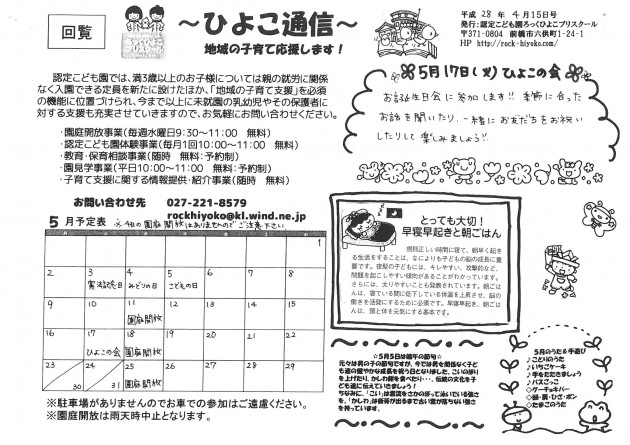 回覧
～ひよこ通信～
地域の子育て応援します！
平成 28 年 4月15日
発行:認定こども園ろっくひよこプリスクール
〒371-0804 前橋市六供町1-24-1
HP http://rock-hiyoko.com/
認定こども園では、満3歳以上のお子様については親の就労に関係
なく入園できる定員を新たに設けたほか、「地域の子育て支援」を必須
の機能に位置づけられ、今まで以上に未就園の乳幼児やその保護者に
対する支援も充実させていきますので、お気軽にお問い合わせください。
・園庭開放事業(毎週水曜日9:30～11:00 無料)
・認定こども園体験事業(毎月1回10:00～11:00 無料)
・教育・保育相談事業(随時 無料:予約制)
・園見学事業(平日10:00～11:00 無料:予約制)
・子育て支援に関する情報提供・紹介事業(随時 無料)
お問い合わせ先 027-221-8579
rockhiyoko@kl.wind.ne.jp
5月17日(火)ひよこの会
お誕生日会に参加します!! 季節に合った
お話を聞いたり、一緒にお友だちをお祝い
したりして楽しみましょう!!
5 月予定表 ※4日の園庭開放はありませんのでご注意下さい
1
2 3 4 5 6 7 8
憲法記念日 みどりの日 こどもの日
9 10 11 12 13 14 15
園庭開放
16 17 18 19 20 21 22
ひよこの会 園庭開放
23 24 25 26 27 28 29
30 31 園庭開放
※駐車場がありませんのでお車での参加はご遠慮ください。
※園庭開放は雨天時中止となります。
とっても大切！
早寝早起きと朝ごはん
規則正しい時間に寝て、朝早く起き
る生活をすることは、なによりも子どもの脳の成長に重
要です。夜型の子どもには、キレやすい、攻撃的など、
問題を起こしやすい傾向があることがわかっています。
さらには、太りやすいことも発表されています。朝ごは
んは、寝ている間に低下している体温を上昇させ、脳の
働きを活発にするために必須です。早寝早起き、朝ごは
んは、頭と体を元気にする基本です。
☆5月5日は端午の節句☆
元々は男の子の節句ですが、今では男女関係なく子ど
も達の健やかな成長を祝う日となりました。こいのぼり
を上げたり、かしわ餅を食べたり・・・、伝統の文化を子ど
も達に伝えていきましょう！
ちなみに、「こい」は激流をさかのぼって泳いでいる強さ
を、「かしわ」は新芽が出るまで古い葉が落ちない強さ
を持っています。
5月のうた&手遊び
♪ことりのうた
♪いちごケーキ
♪手をたたきましょう
♪バスごっこ
♪ケーチョキパー
♪頭・肩・ひざ・ポン
♪たまごのうた